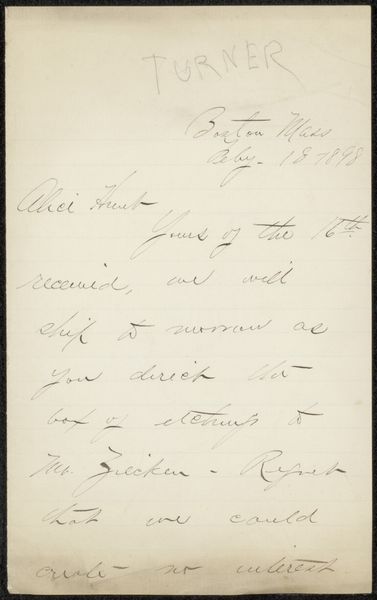 TURNER
Boston Mass
Feby. 18 1898
Alice Hunt
Yours of the 16th
received, we will
ship to morrow as
you direct the
box of etchings to
Mr. Zilcken - Regret
that we could
create no interest